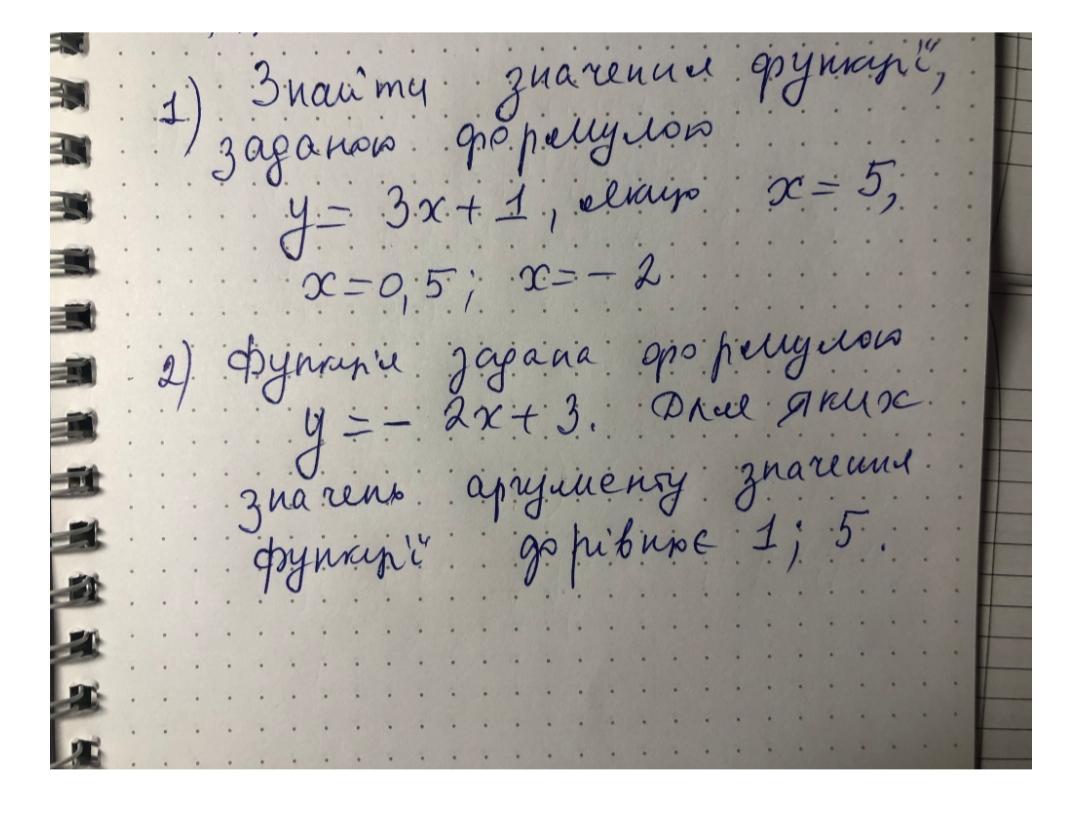 1) Знайти значення функції,
заданою формулою
y = 3x + 1, якщо x = 5,
x = 0,5; x = - 2
2) Функція задана формулою
y = - 2x + 3. Для яких
значень аргументу значення
функції дорівнює 1; 5.